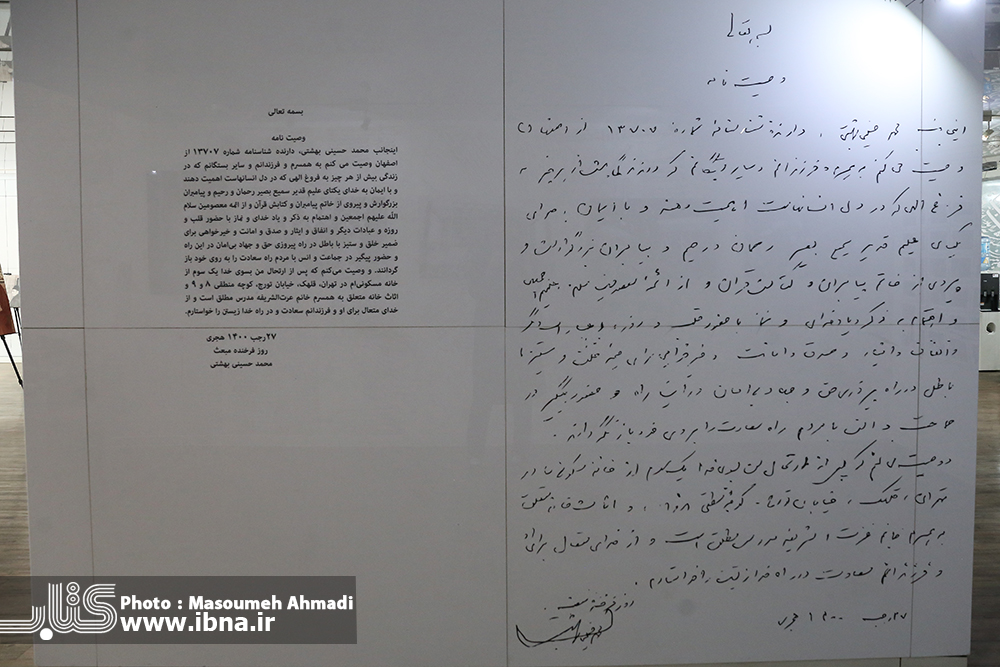 بسمه تعالی
وصیت نامه
اینجانب محمد حسینی بهشتی، دارنده شناسنامه شماره ۱۳۷۰۷ از
اصفهان وصیت می کنم به همسرم و فرزندانم و سایر بستگانم که در
زندگی بیش از هر چیز به فروغ الهی که در دل انسانهاست اهمیت دهند
و با ایمان به خدای یکتای علیم قدیر سمیع بصیر رحمان و رحیم و پیامبران
بزرگوارش و پیروی از خاتم پیامبران و کتابش قرآن و از ائمه معصومین سلام
الله علیهم اجمعین و اهتمام به ذکر و یاد خدای و نماز با حضور قلب و
روزه و عبادات دیگر و انفاق و ایثار و صدق و امانت و خیرخواهی برای
ضمیر خلق و ستیز با باطل در راه پیروزی حق و جهاد بی‌امان در این راه
و حضور پیگیر در جماعت و انس با مردم راه سعادت را به روی خود باز
گردانند. و وصیت می‌کنم که پس از ارتحال من بسوی خدا یک سوم از
خانه مسکونی‌ام در تهران، قلهک، خیابان تورج، کوچه منطقی ۸ و ۹ و
اثاث خانه متعلق به همسرم خانم عزت‌الشریفه مدرس مطلق است و از
خدای متعال برای او و فرزندانم سعادت و در راه خدا زیستن را خواستارم.
۲۷ رجب ۱۴۰۰ هجری
روز فرخنده مبعث
محمد حسینی بهشتی
بسمه تعالی
وصیت نامه
اینجانب محمد حسینی بهشتی، دارنده شناسنامه شماره ۱۳۷۰۷ از اصفهان
وصیت می کنم به همسرم و فرزندانم و سایر بستگانم که در زندگی بیش از هر چیز به
فروغ الهی که در دل انسانهاست اهمیت دهند و با ایمان به خدای
یکتای علیم قدیر سمیع بصیر رحمان و رحیم و پیامبران بزرگوارش و
پیروی از خاتم پیامبران و کتابش قرآن و از ائمه معصومین سلام
و اهتمام به ذکر و یاد خدای و نماز با حضور قلب و روزه و عبادات دیگر
و انفاق و ایثار و صدق و امانت و خیرخواهی برای خلق و ستیز با
باطل در راه پیروزی حق و جهاد بی امان در این راه و حضور پیگیر در
جماعت و انس با مردم راه سعادت را بروی خود باز گردانند.
و وصیت می کنم که پس از ارتحال من بسوی خدا یک سوم از خانه مسکونی ام در
تهران، قلهک، خیابان تورج، کوچه منطقی ۸ و ۹، و اثاث خانه متعلق
به همسرم خانم عزت الشریفه مدرس مطلق است و از خدای متعال برای او
و فرزندانم سعادت و در راه خدا زیستن را خواستارم.
۲۷ رجب ۱۴۰۰ هجری
روز فرخنده مبعث
کتاب
Photo : Masoumeh Ahmadi
www.ibna.ir